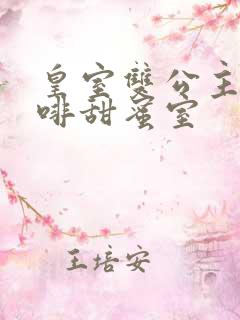 皇室雙公主
啡甜蜜室
王培安